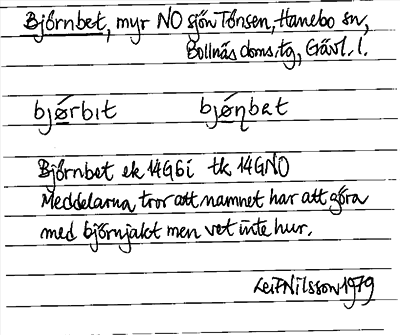 Björnbet, myr NO sjön Tönsen, Hanebo sn,
Bollnäs doms.tg, Gävl. l.
bjǿrbıt bjǿɳbɐt
Björnbet ek 14G6i tk 14GNO
Meddelarna tror att namnet har att göra
med björnjakt men vet inte hur.
Leif Nilsson 1979